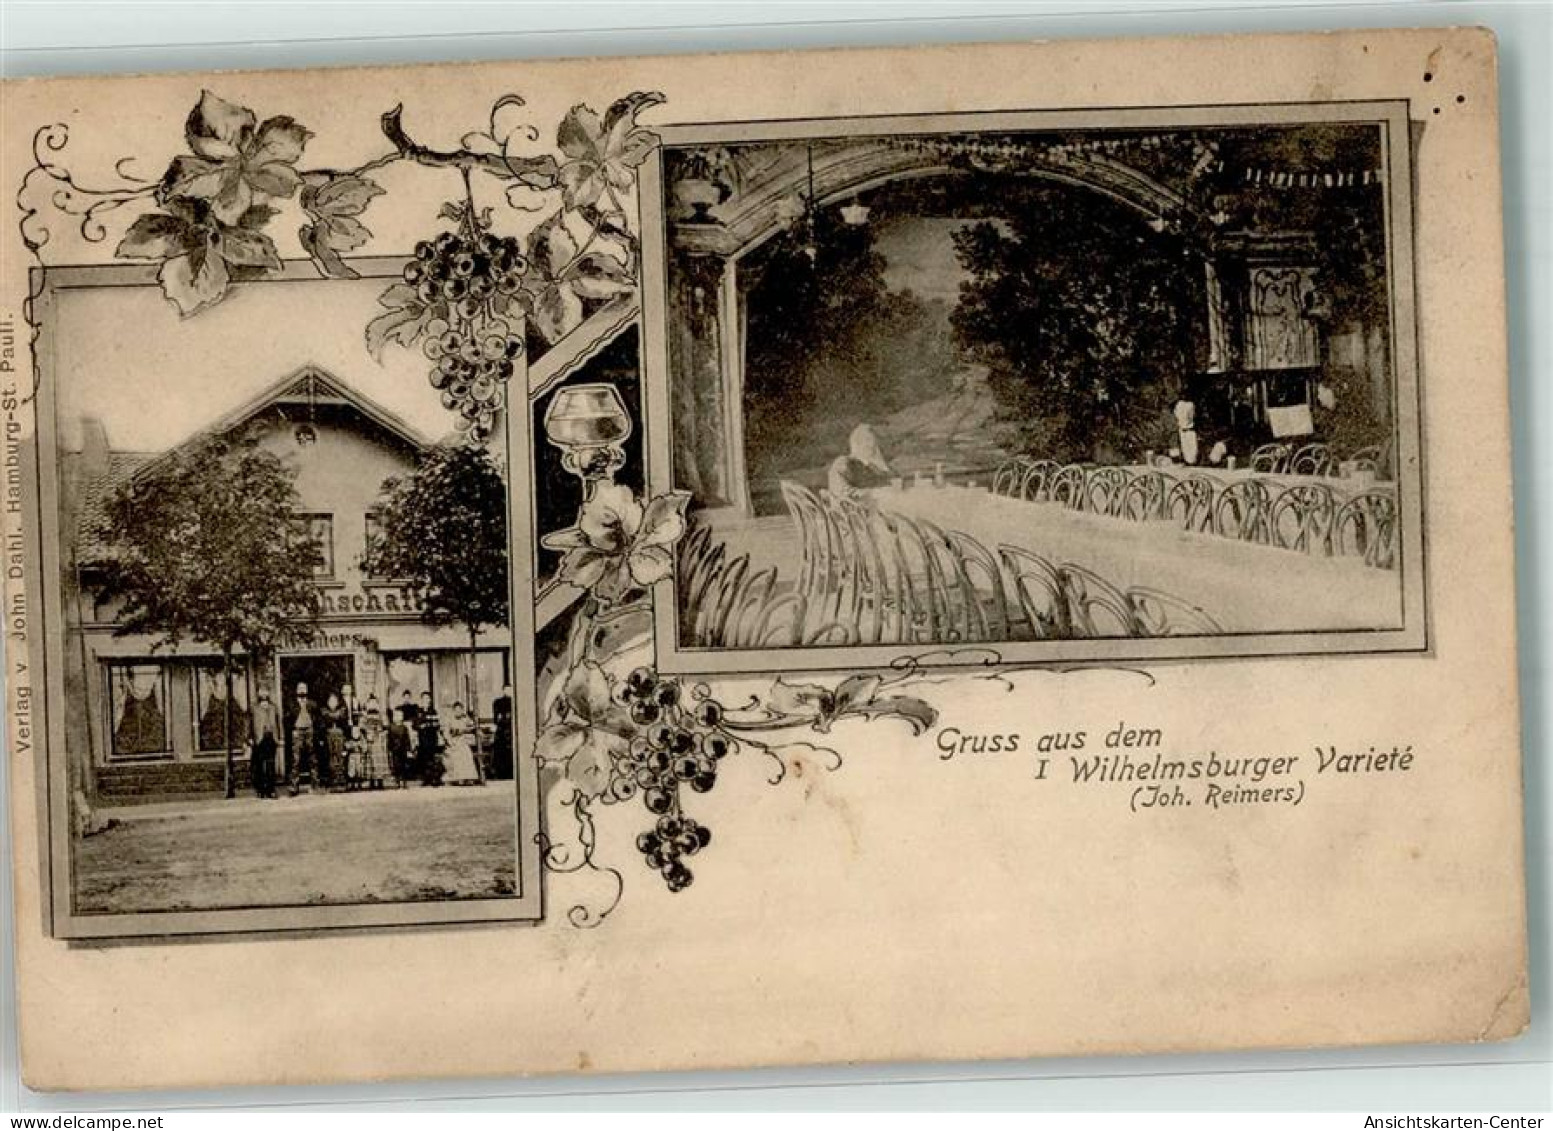 Verlag v John Dahl. Hamburg-St. Pauli.
Gruss aus dem
I Wilhelmsburger Varieté
(Joh. Reimers)
delcampe.net
Ansichtskarten-Center